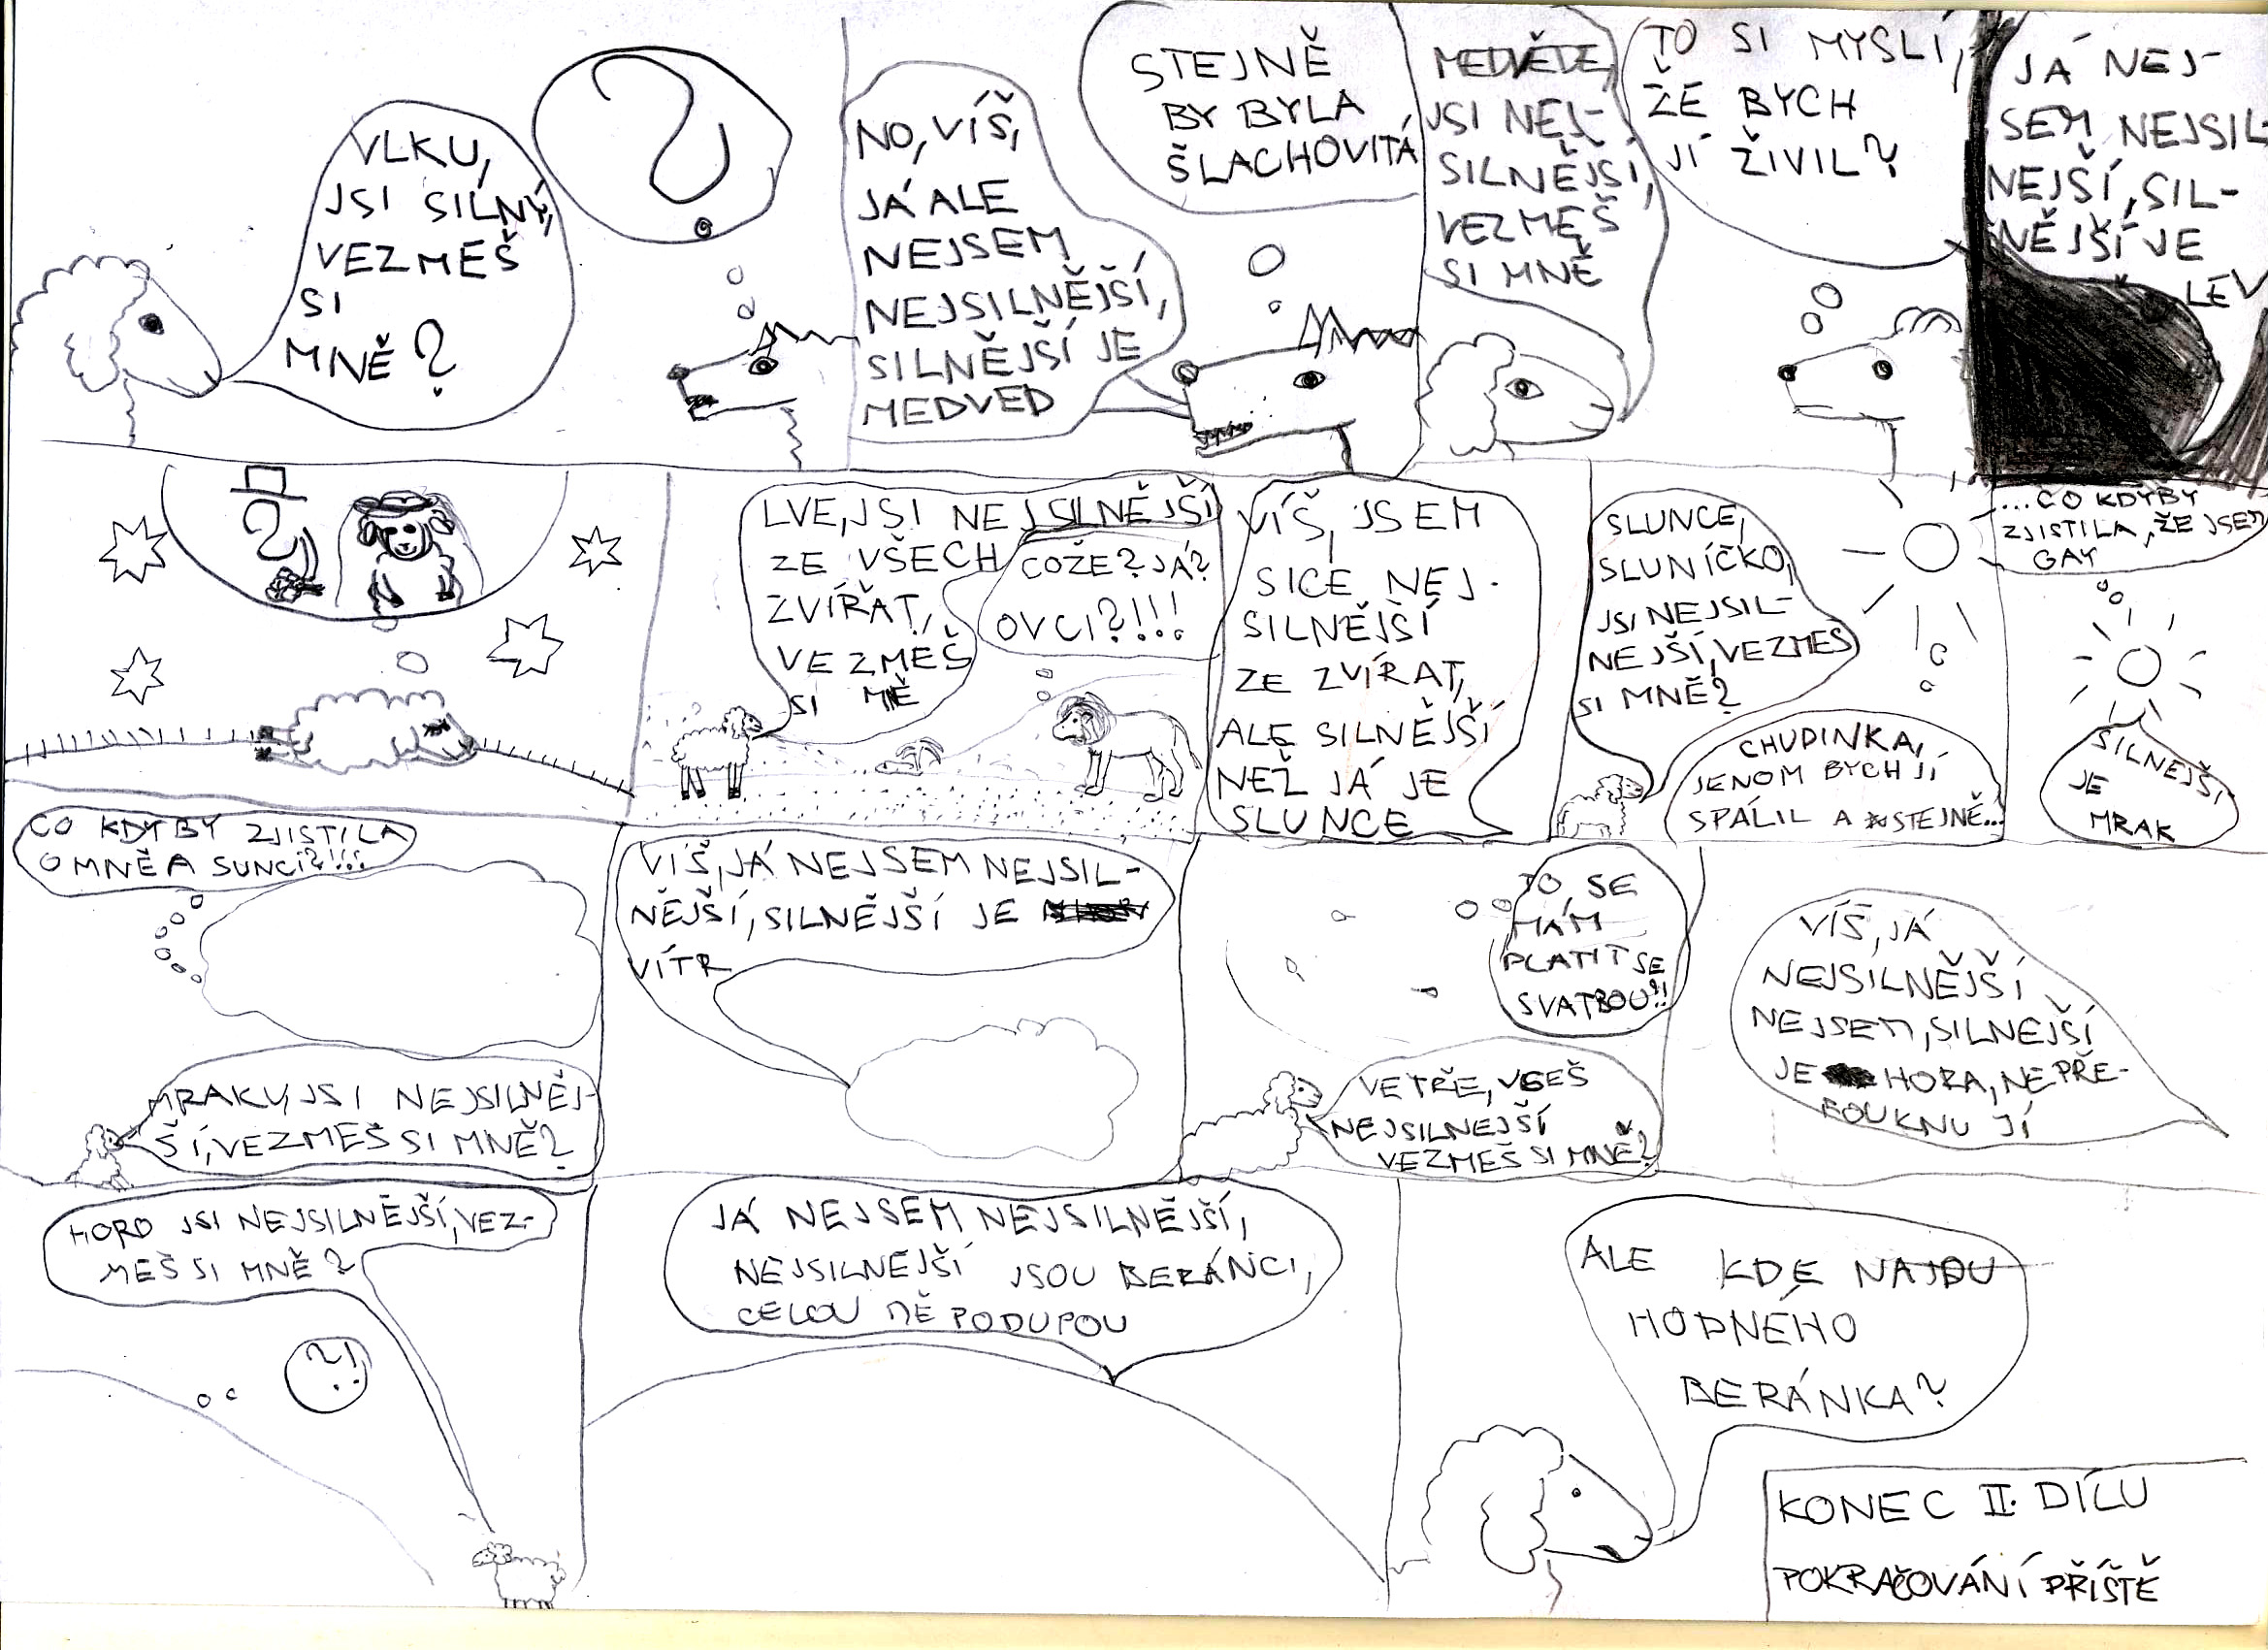 VLKU,
JSI SÍLNÝ,
VEZMEŠ
SI
MNĚ?
?
NO, VÍŠ,
JÁ ALE
NEJSEM
NEJSILNĚJŠÍ,
SILNĚJŠÍ JE
MEDVED
STEJNĚ
BY BYLA
ŠLACHOVITÁ
MEDVĚDE,
JSI NEJ-
SILNĚJŠÍ,
VEZMEŠ
SI MNĚ
TO SI MYSLÍ,
ŽE BYCH
JÍ ŽIVIL?
JÁ NEJ-
SEM NEJSIL-
NEJŠÍ, SIL-
NĚJŠÍ JE
LEV
?
LVE, JSI NEJSILNĚJŠÍ
ZE VŠECH
ZVÍŘAT,
VEZMEŠ
SI MĚ
COŽE? JÁ?
OVCI?!!!
VÍŠ, JSEM
SICE NEJ-
SILNĚJŠÍ
ZE ZVÍRAT,
ALE SILNĚJŠÍ
NEŽ JÁ JE
SLUNCE
SLUNCE,
SLUNÍČKO,
JSI NEJSIL-
NEJŠÍ, VEZMES
SI MNĚ?
CHUDINKA,
JENOM BYCH JÍ
SPÁLIL A STEJNĚ...
...CO KDYBY
ZJISTILA, ŽE JSEM
GAY
SILNEJŠÍ
JE
MRAK
CO KDYBY ZJISTILA
O MNĚ A SUNCI?!!!
MRAKU, JSI NEJSILNĚJ-
ŠÍ, VEZMEŠ SI MNĚ?
VÍŠ, JÁ NEJSEM NEJSIL-
NĚJŠÍ, SILNĚJŠÍ JE
VÍTR
TO SE
MÁM
PLATIT SE
SVATBOU?!
VETŘE, VŠEŠ
NEJSILNEJŠÍ
VEZMEŠ SI MNĚ?
VÍŠ, JÁ
NEJSILNĚJŠÍ
NEJSEM, SILNEJŠÍ
JE HORA, NEPŘE-
FOUKNU JÍ
HORO JSI NEJSILNĚJŠÍ, VEZ-
MEŠ SI MNĚ?
?!
JÁ NEJSEM NEJSILNĚJŠÍ,
NEJSILNEJŠÍ JSOU BERÁNCI,
CELOU MĚ PODUPOU
ALE KDE NAJDU
HODNÉHO
BERÁNKA?
KONEC II. DÍLU
POKRAČOVÁNÍ PŘÍŠTĚ